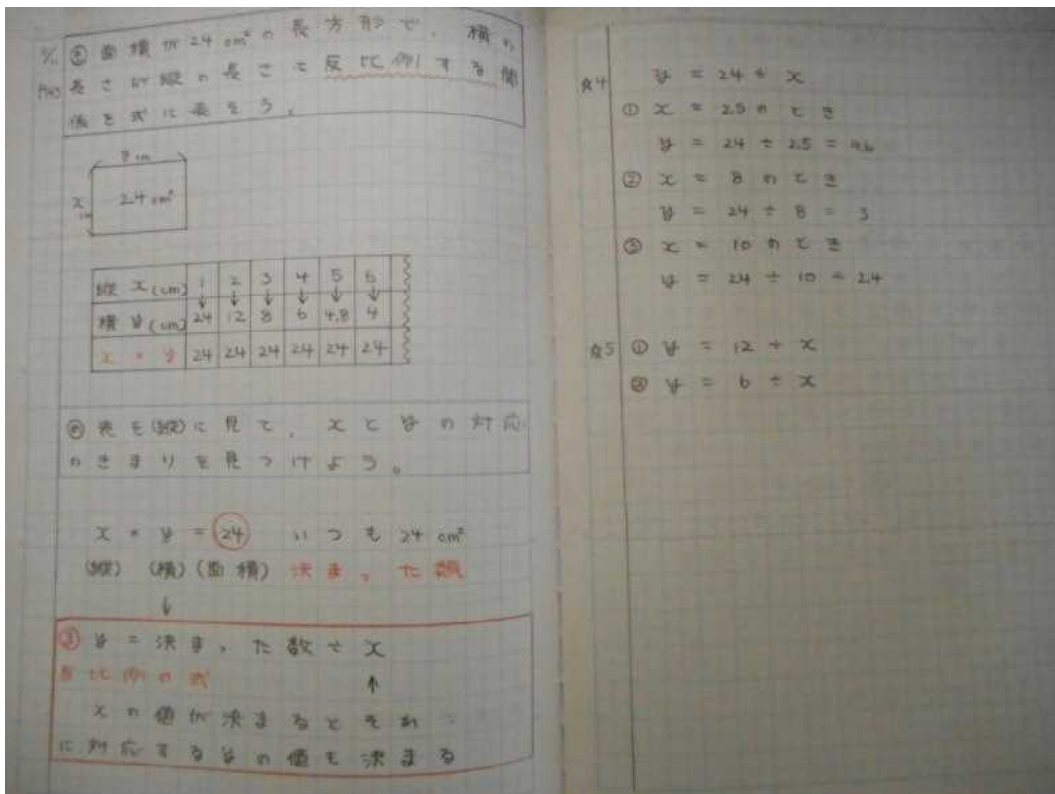 面積が24cm²の長方形で、横の
長さが縦の長さに反比例する関
係を式に表そう。
ycm
x
cm
24cm²
縦 x(cm) 1 2 3 4 5 6
横 y(cm) 24 12 8 6 4.8 4
x × y 24 24 24 24 24 24
表を(縦)に見て、xとyの対応
のきまりを見つけよう。
x × y = 24 いつも24cm²
(縦) (横) (面積) 決まった数
↓
y = 決まった数 ÷ x
反比例の式 ↑
xの値が決まるとそれ
に対応するyの値も決まる
4 y = 24 ÷ x
① x = 2.5のとき
y = 24 ÷ 2.5 = 9.6
② x = 8のとき
y = 24 ÷ 8 = 3
③ x = 10のとき
y = 24 ÷ 10 = 2.4
5 ① y = 12 ÷ x
② y = 6 ÷ x